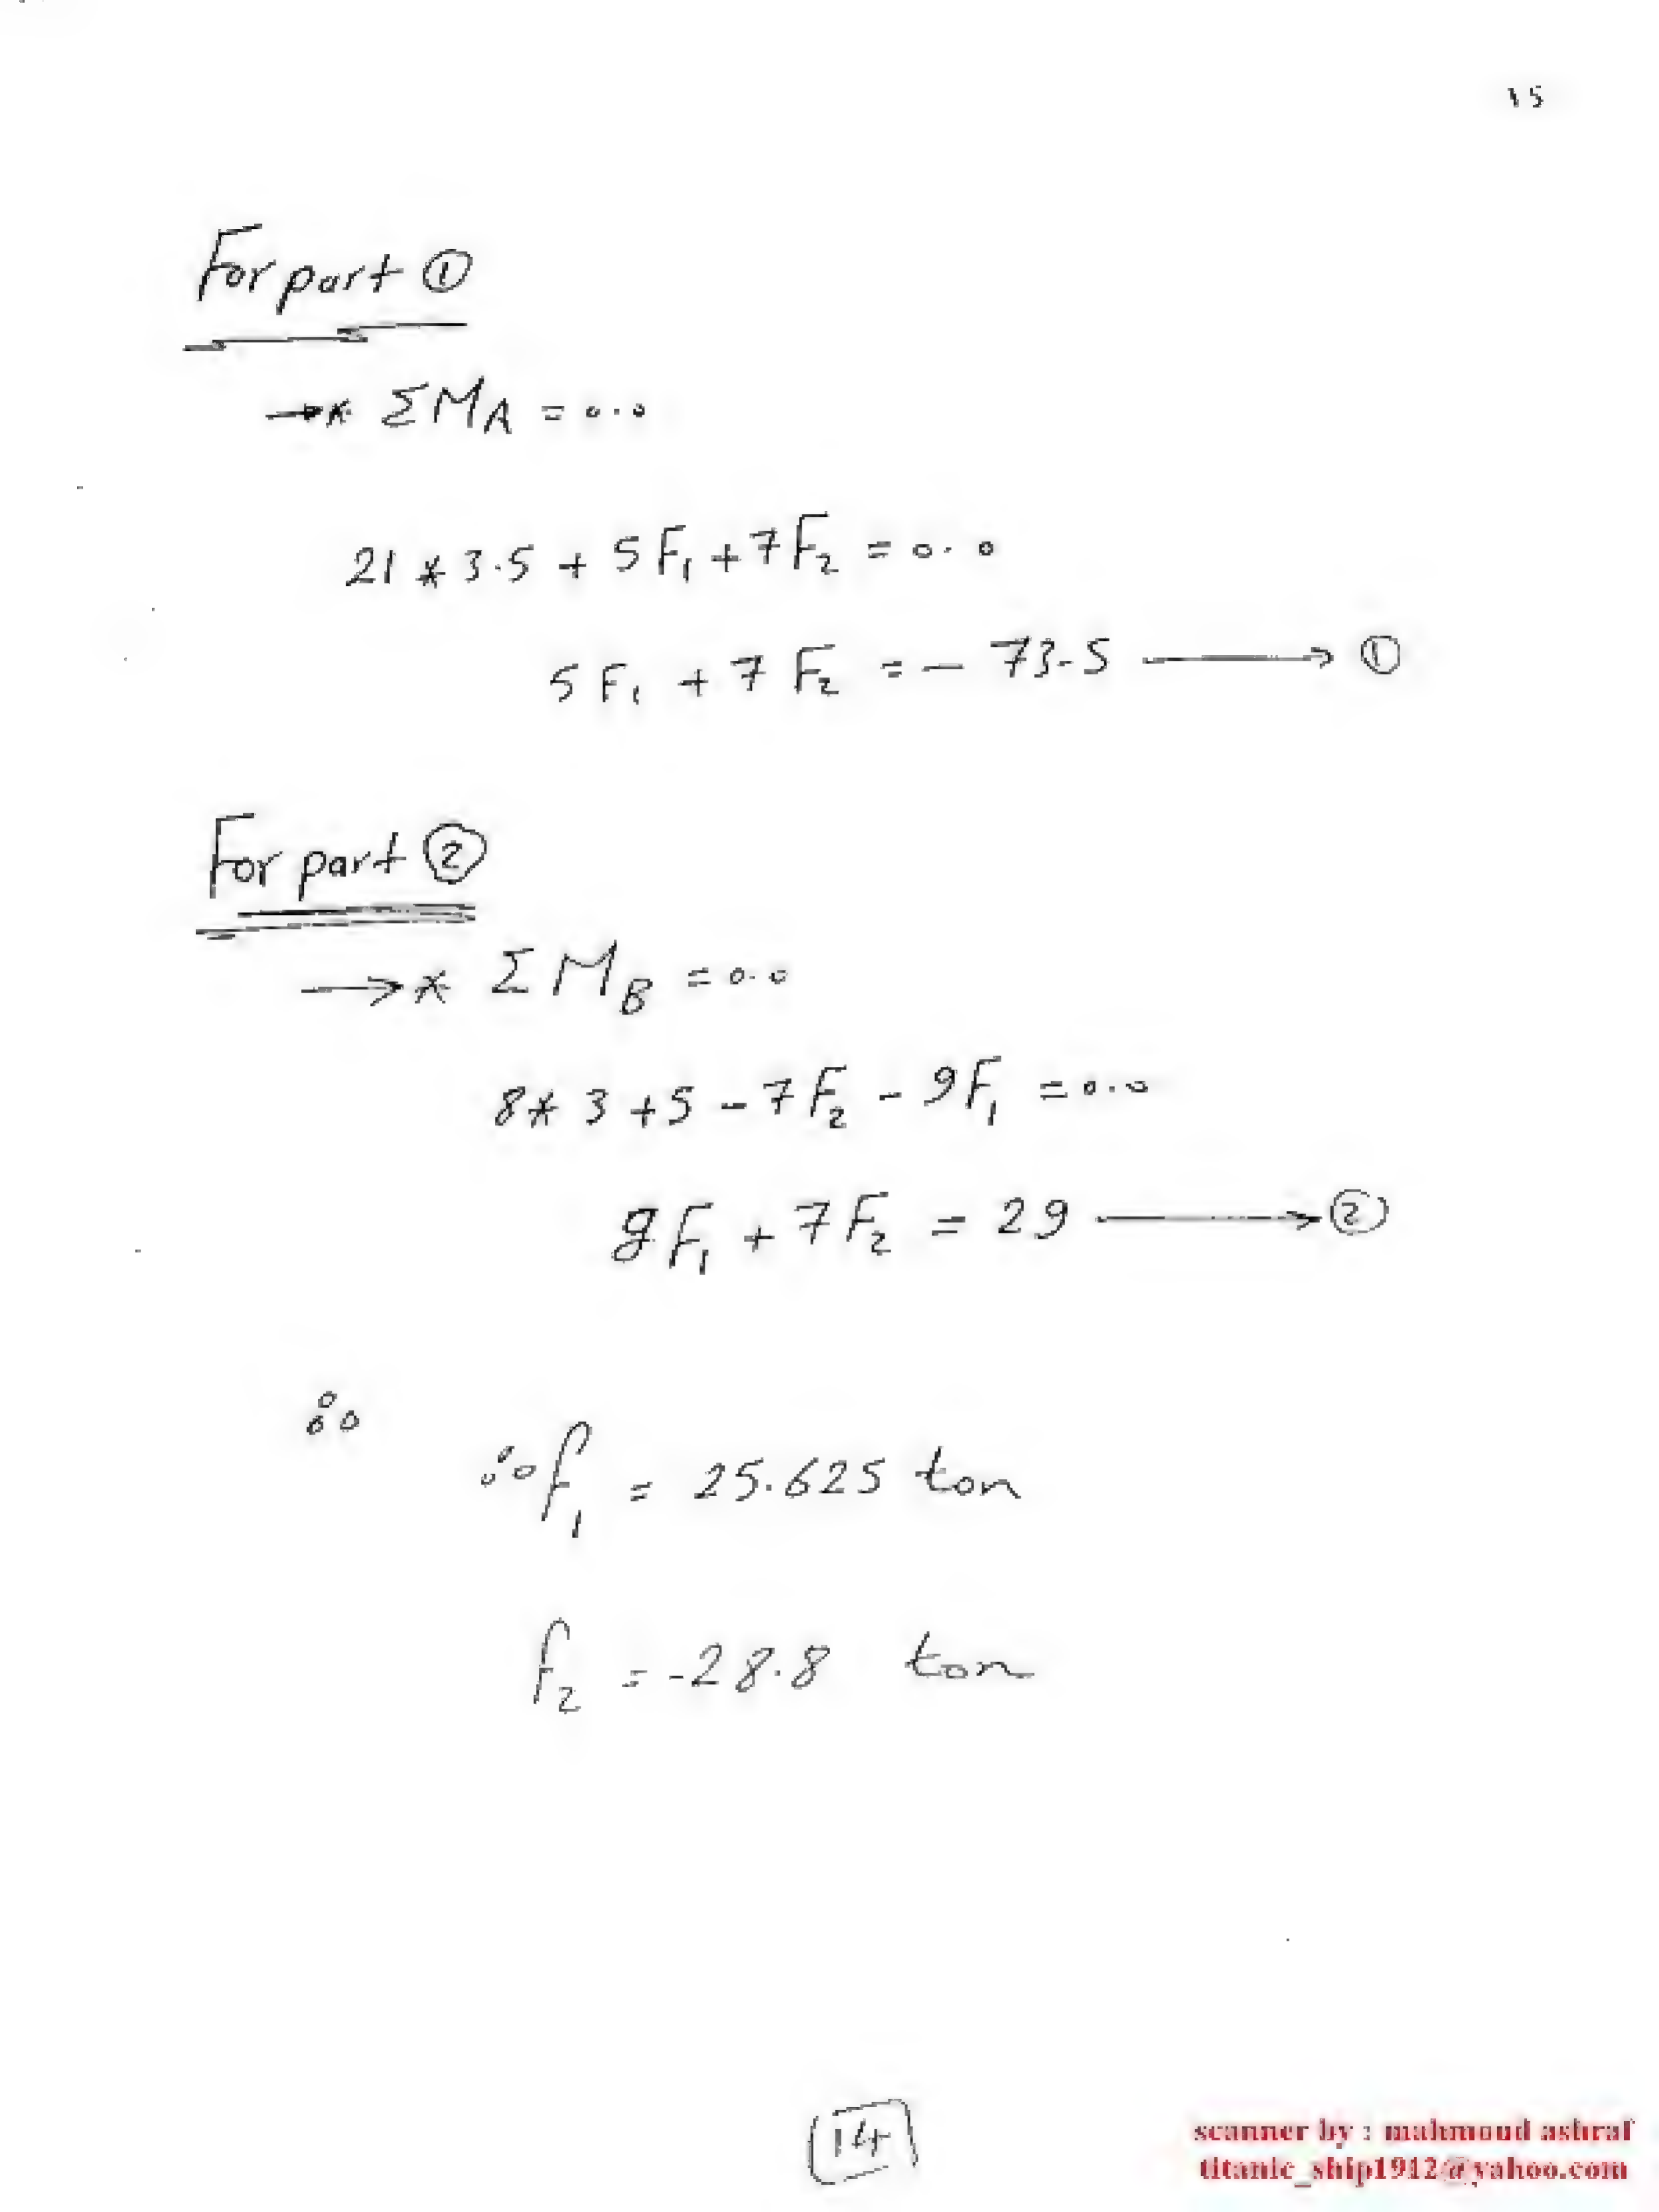 15
For part ①
→* ΣMA = 0.0
21 * 3.5 + 5F₁ + 7F₂ = 0.0
5F₁ + 7F₂ = - 73.5 → ①
For part ②
→* ΣMB = 0.0
8* 3 + 5 - 7F₂ - 9F₁ = 0.0
9F₁ + 7F₂ = 29 → ②
∴
∴ f₁ = 25.625 ton
f₂ = -28.8 ton
14
scanner by : mahmoud ashraf
titanic_ship1912@yahoo.com